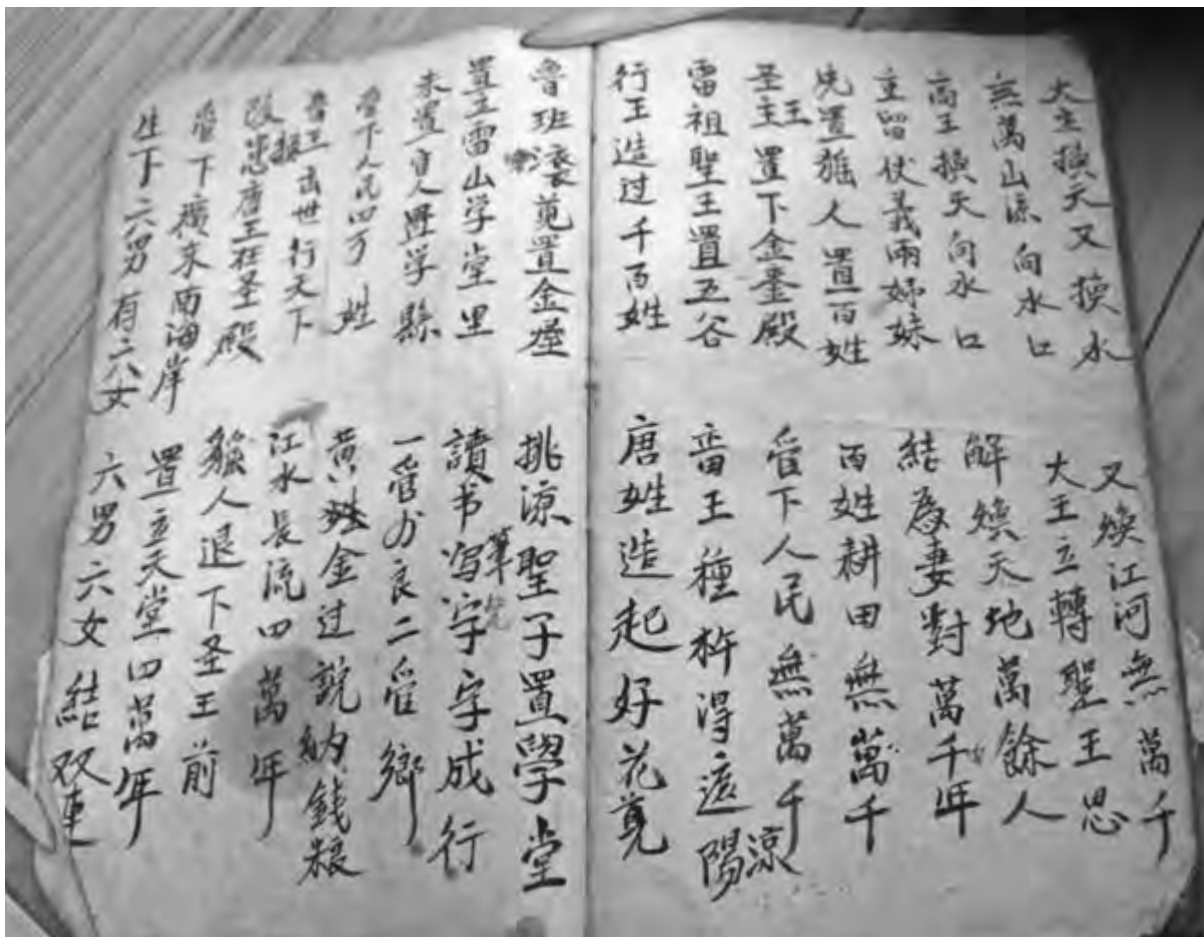 大王換天又換水
又煥江河無萬千
無萬山源向水口
大王立轉聖王思
高王換天向水口
解煥天地萬餘人
重留伏義兩姊妹
結為妻對萬千年
先置猺人置百姓
百姓耕田無萬千
圣主王置下金銮殿
管下人民無萬千
雷祖聖王置五谷
畨王種杵得遮陽涼
行王造过千百姓
唐姓造起好花
鲁班滚置金
挑凉聖子置學堂
置立雷山学堂里
讀书写字字成行
未置一官人興学縣
一管二管鄉
管下人民四万姓
黄金过説纳錢粮
鲁王出世行天下
江水長流四萬年
改換唐王在圣殿
猺人退下圣王前
管下廣東南海岸
置立天堂四萬年
生下六男有六女
六男六女結双連